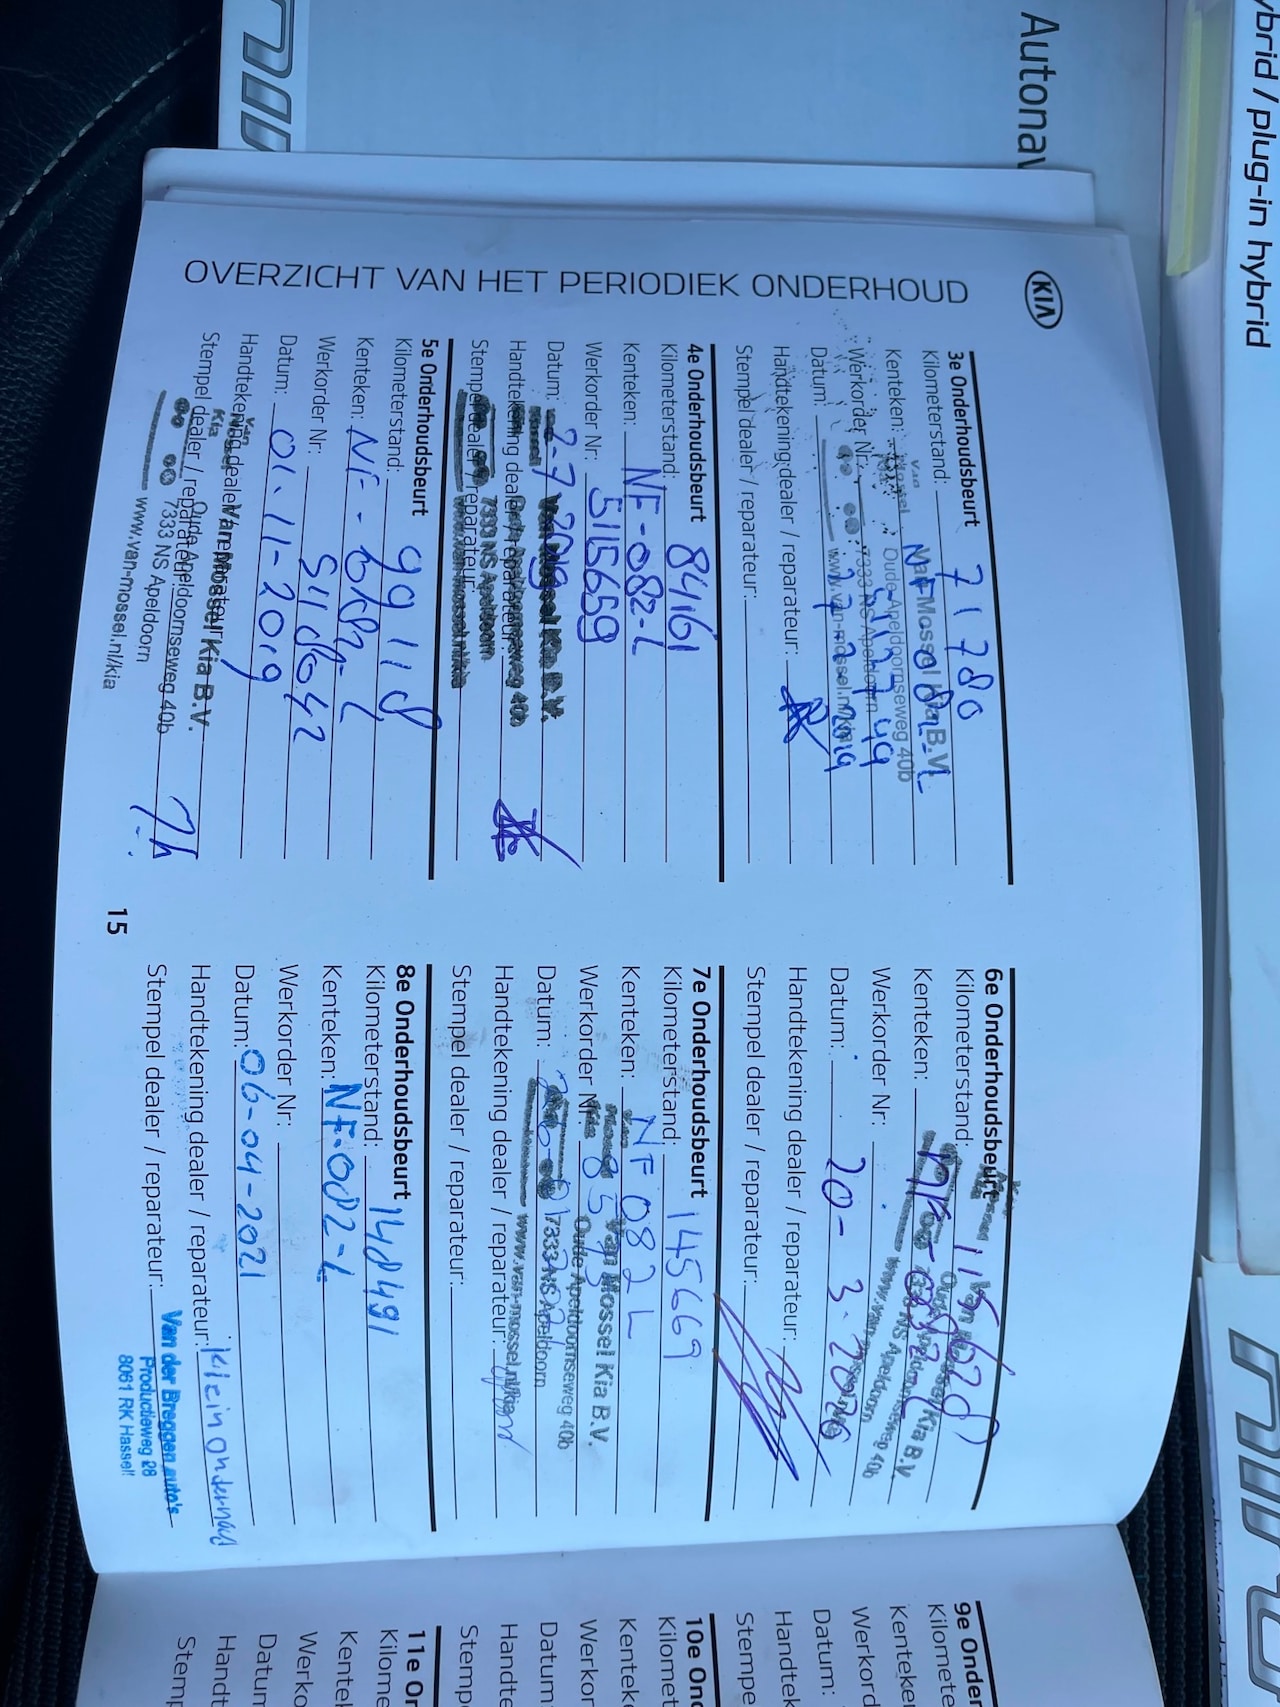 Autonav
ybrid / plug-in hybrid
KIA
OVERZICHT VAN HET PERIODIEK ONDERHOUD
3e Onderhoudsbeurt
Kilometerstand: 71780
Kenteken: NF-082-L
Werkorder Nr.:
Datum: 2019
Handtekening dealer / reparateur:
Stempel dealer / reparateur:
Van Mossel Kia B.V.
Oude Apeldoornseweg 40b
7333 NS Apeldoorn
www.van-mossel.nl/kia
4e Onderhoudsbeurt
Kilometerstand: 84161
Kenteken: NF-082-L
Werkorder Nr.: 5115659
Datum: 2-7 2019
Handtekening dealer / reparateur:
Stempel dealer / reparateur:
Van Mossel Kia B.V.
Oude Apeldoornseweg 40b
7333 NS Apeldoorn
www.van-mossel.nl/kia
5e Onderhoudsbeurt
Kilometerstand: 99118
Kenteken: NF-082-L
Werkorder Nr.: 5118042
Datum: 01-11-2019
Handtekening dealer / reparateur:
Stempel dealer / reparateur:
Van Mossel Kia
Van Mossel Kia B.V.
Oude Apeldoornseweg 40b
7333 NS Apeldoorn
www.van-mossel.nl/kia
6e Onderhoudsbeurt
Kilometerstand: 115628
Kenteken: NF-082-L
Werkorder Nr.:
Datum: 20-3-2020
Handtekening dealer / reparateur:
Stempel dealer / reparateur:
Van Mossel Kia B.V.
Oude Apeldoornseweg 40b
7333 NS Apeldoorn
www.van-mossel.nl/kia
7e Onderhoudsbeurt
Kilometerstand: 145669
Kenteken: NF 082 L
Werkorder Nr.:
Datum:
Handtekening dealer / reparateur:
Stempel dealer / reparateur:
Van Mossel Kia
Van Mossel Kia B.V.
Oude Apeldoornseweg 40b
7333 NS Apeldoorn
www.van-mossel.nl/kia
8e Onderhoudsbeurt
Kilometerstand: 148491
Kenteken: NF-082-L
Werkorder Nr.:
Datum: 06-04-2021
Handtekening dealer / reparateur: klein onderhoud
Stempel dealer / reparateur:
Van der Breggen auto's
Productieweg 28
8061 RK Hasselt
15
9e Onder
Kilomete
Kenteken
Werkord
Datum:
Handtek
Stempe
10e Ond
Kilomet
Kentek
Werkor
Datum
Handte
Stemp
11e On
Kilome
Kentel
Werko
Datum
Handt
Stemp